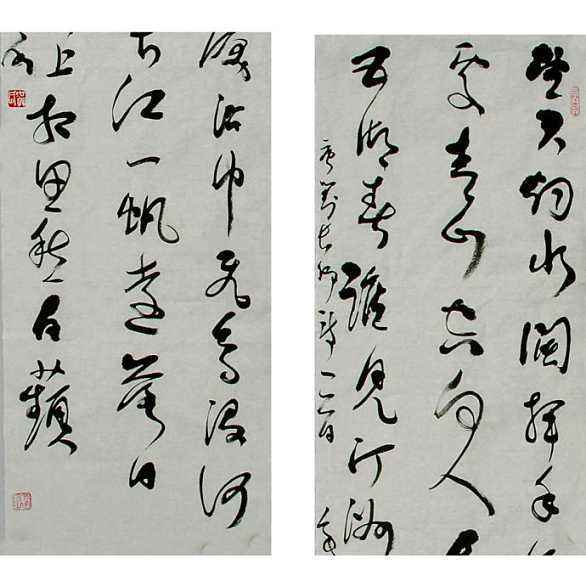 望君烟水阔挥手
处青山空向人
五湖春谁见汀洲
唐刘长卿诗一首
泪沾巾飞鸟没何
长江一帆远落日
上相思愁白蘋